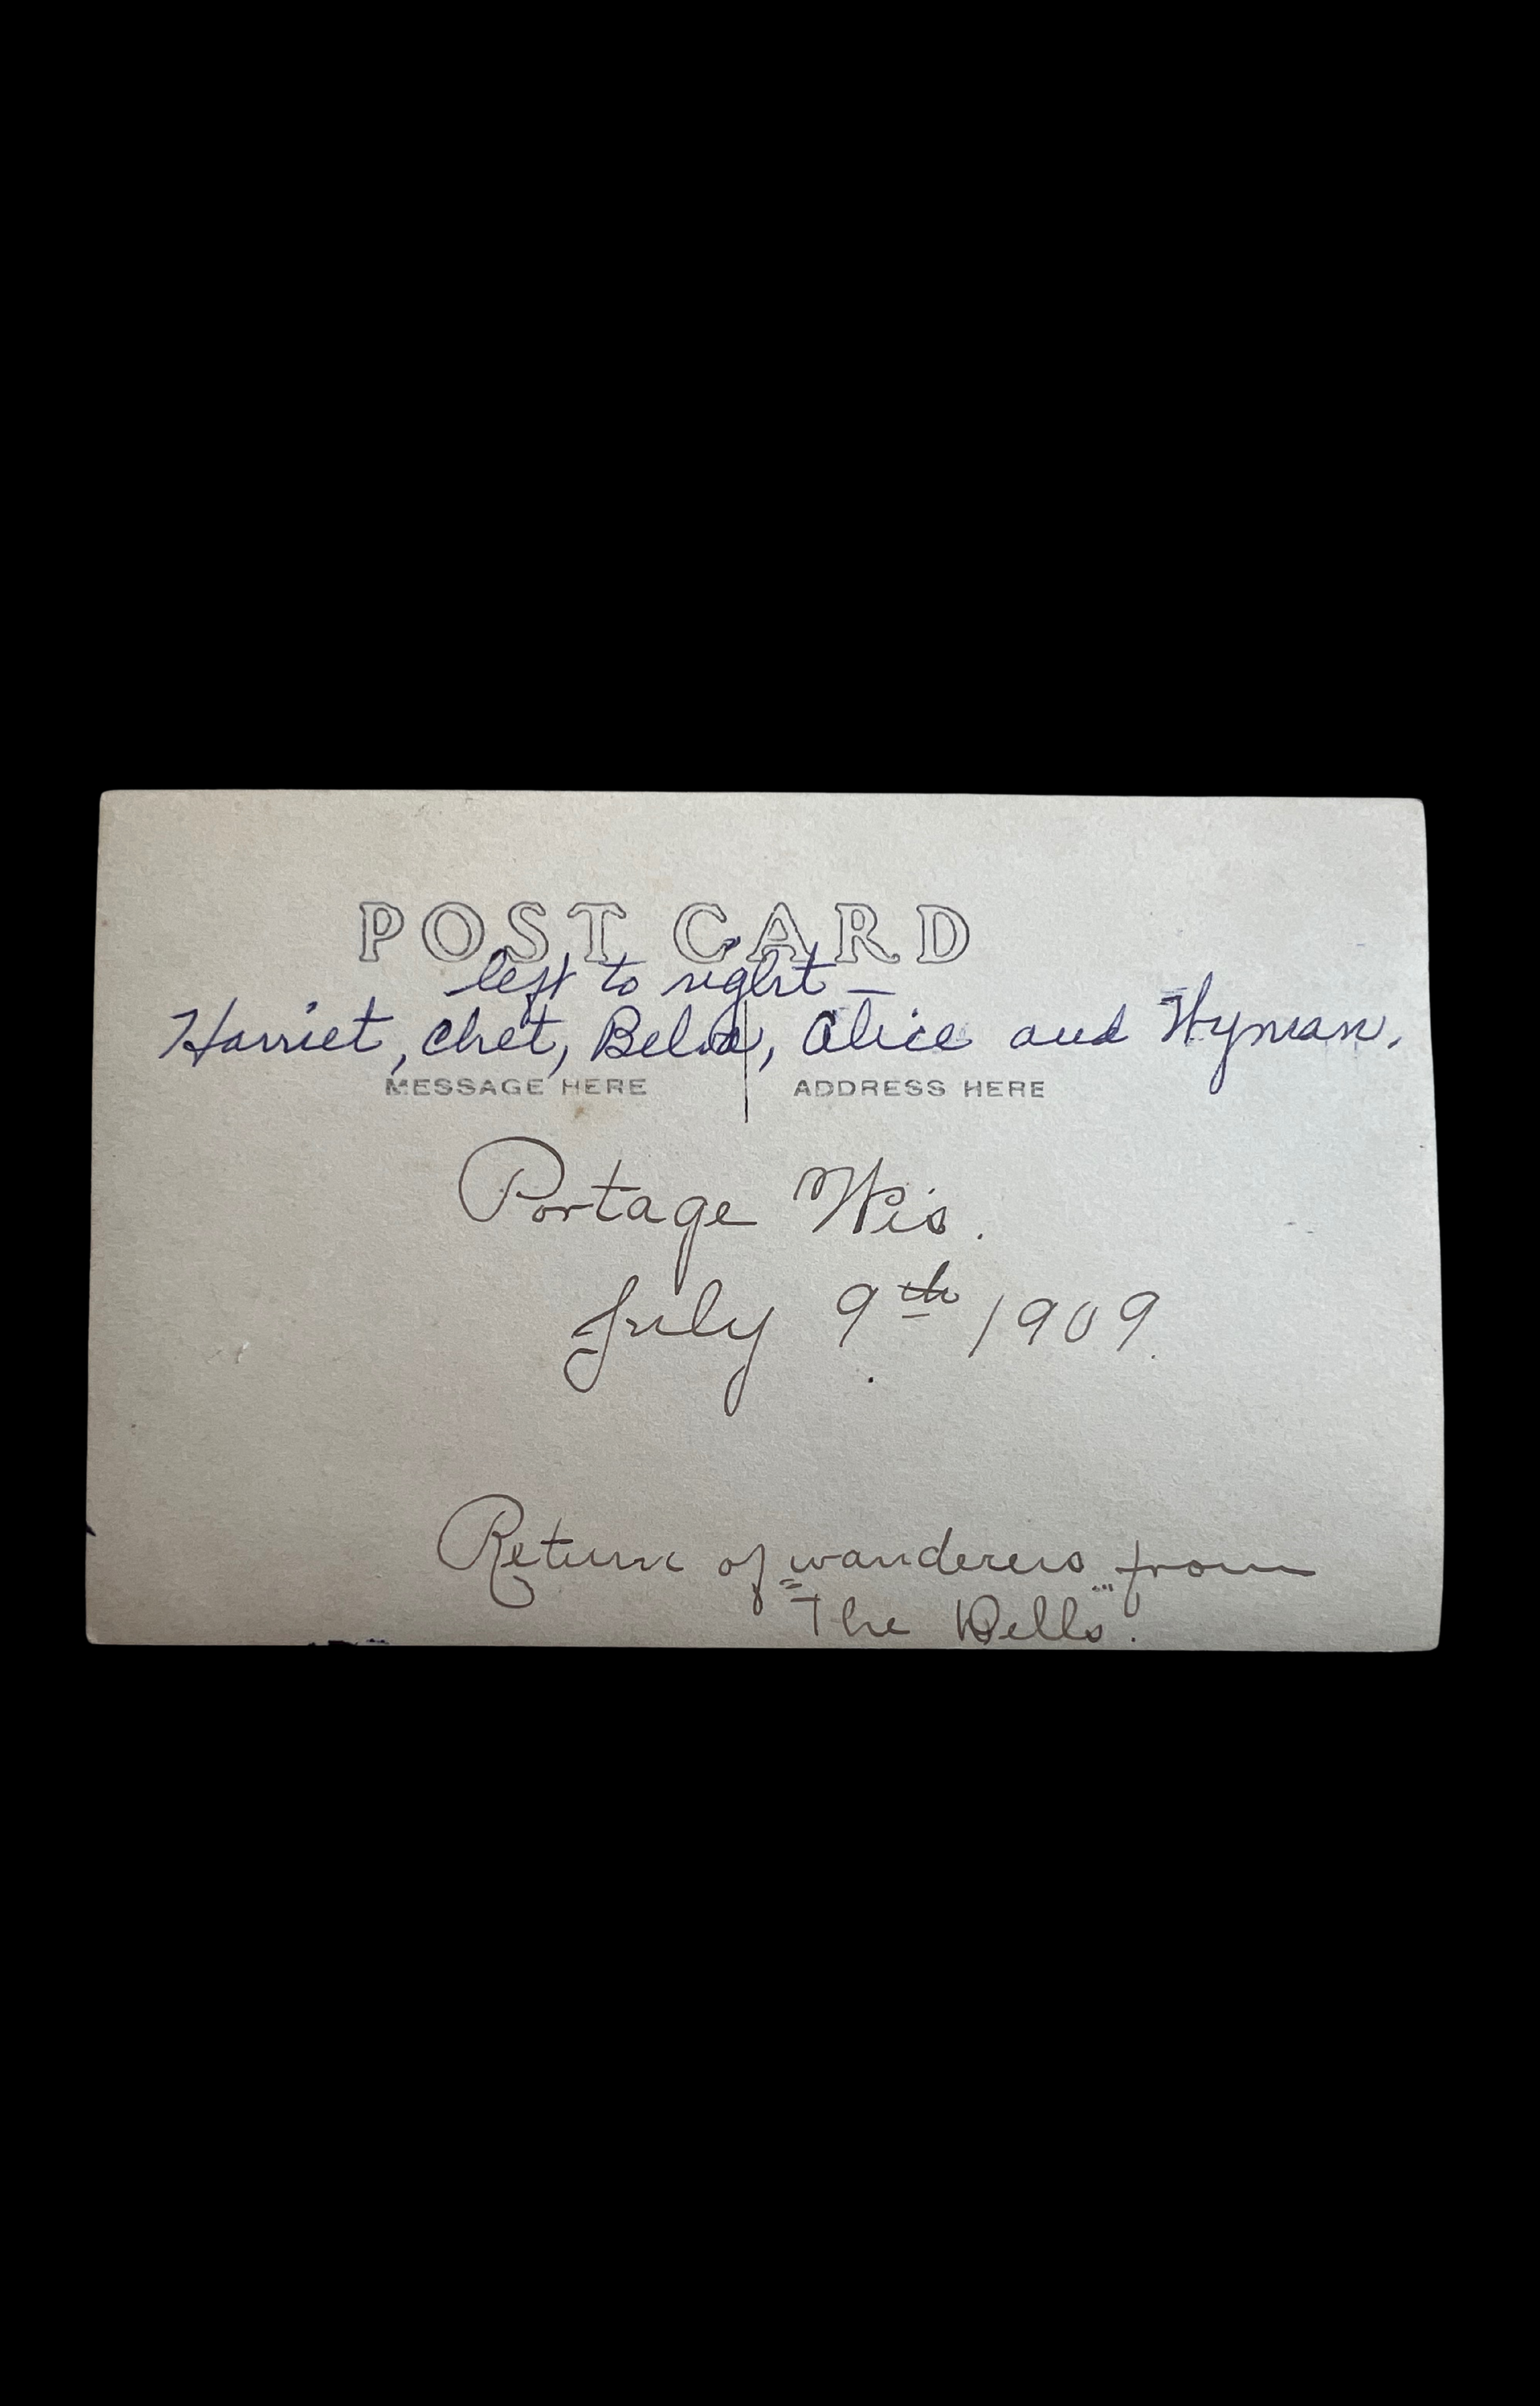 POST CARD
left to right —
Harriet, Chet, Belva, Alice and Wyman.
MESSAGE HERE ADDRESS HERE
Portage Wis.
July 9th 1909.
Return of wanderers from
"The Dells".